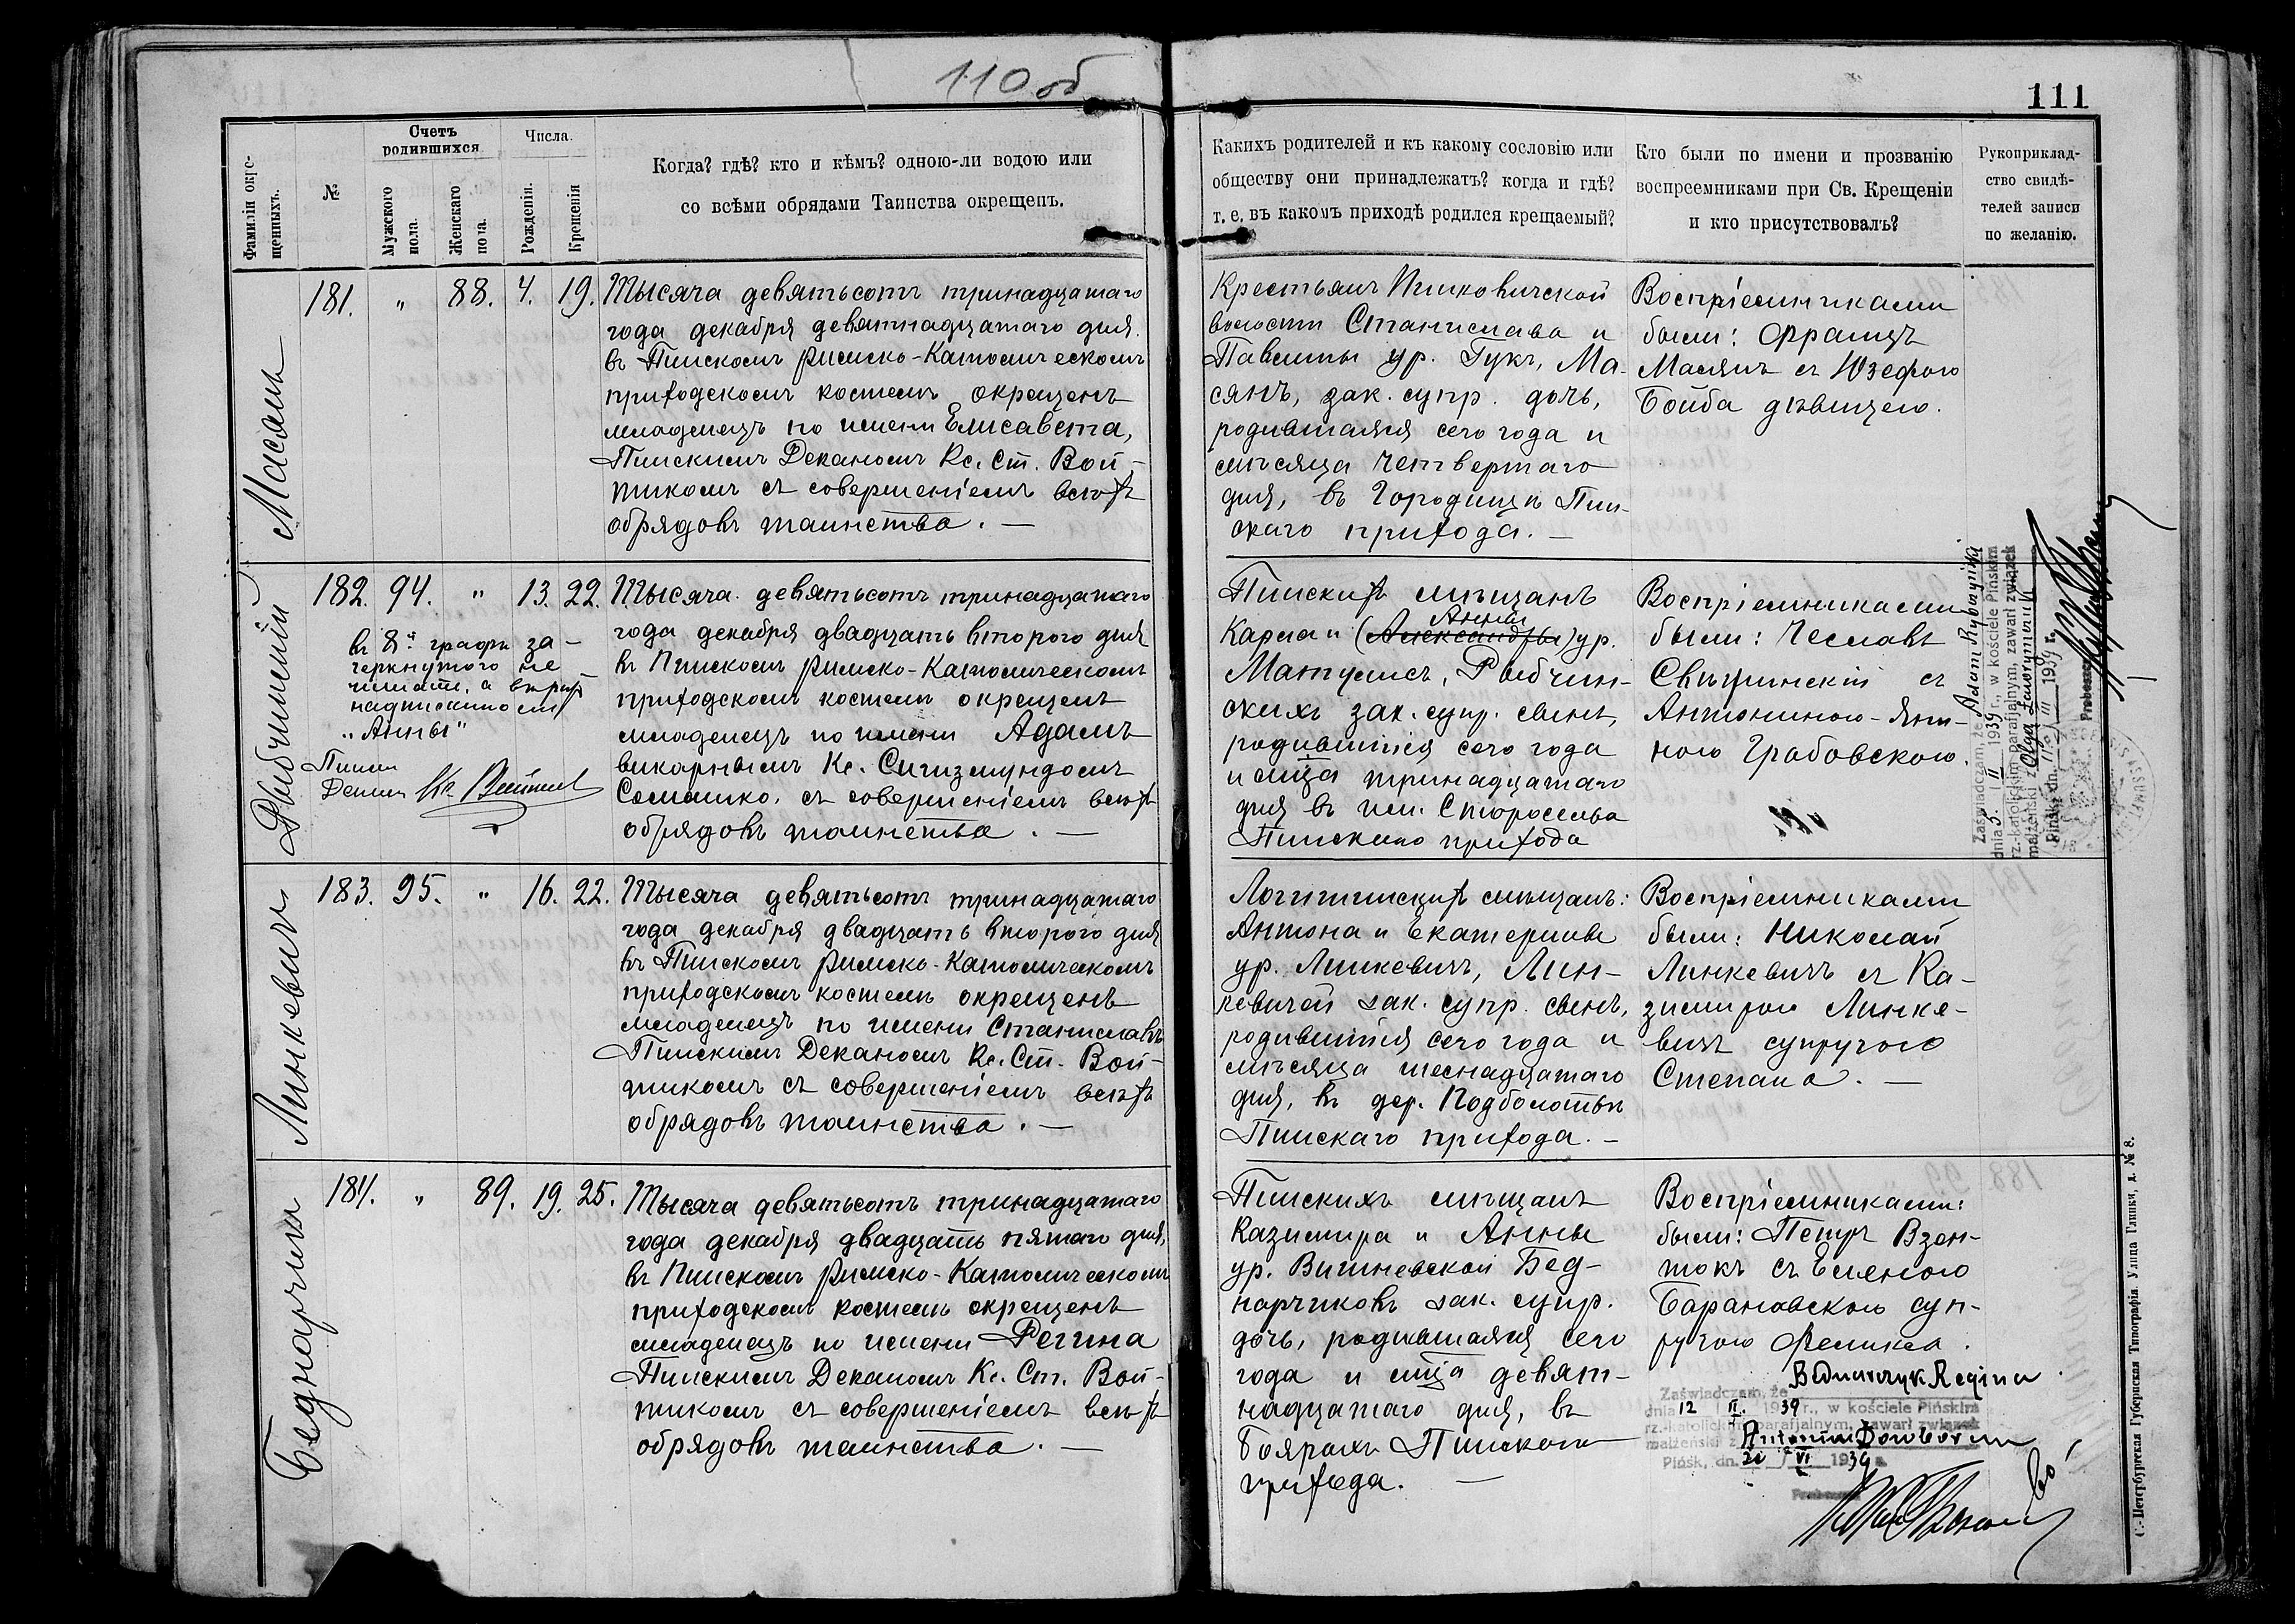 110 об
111
Фамиліи окре-
щенныхъ.
№
Счетъ
родившихся
Мужского
пола.
Женскаго
пола.
Числа.
Рожденія.
Крещенія
Когда? гдѣ? кто и кѣмъ? одною-ли водою или
со всѣми обрядами Таинства окрещенъ.
Какихъ родителей и къ какому сословію или
обществу они принадлежатъ? когда и гдѣ?
т. е. въ какомъ приходѣ родился крещаемый?
Кто были по имени и прозванію
воспреемниками при Св. Крещеніи
и кто присутствовалъ?
Рукоприклад-
ство свидѣ-
телей записи
по желанію.
Масянъ
181. " 88. 4. 19.
Тысяча девятьсотъ тринадцатаго
года декабря девятнадцатаго дня
въ Пинскомъ римско-Католическомъ
приходскомъ костелѣ окрещенъ
младенецъ по имени Елисавета,
Пинскимъ Деканомъ Кс. Ст. Вой-
тикомъ съ совершеніемъ всѣхъ
обрядовъ таинства. —
Крестьянъ Пинковичской
волости Станислава и
Павлины ур. Гукъ, Ма-
сянъ, зак. супр. дочь,
родившаяся сего года и
мѣсяца четвертаго
дня, въ Городищѣ Пин-
скаго прихода. —
Воспріемниками
были: Францъ
Масянъ съ Юзефою
Бойба дѣвицею.
Рыбчинскій
182. 94. " 13. 22.
въ 8й графѣ за-
черкнутого не
читать, а вѣрить
надписанному
"Анны"
Пинск
Декан Кс. Войтик
Тысяча девятьсотъ тринадцатаго
года декабря двадцать второго дня
въ Пинскомъ римско-Католическомъ
приходскомъ костелѣ окрещенъ
младенецъ по имени Адамъ
викарнымъ Кс. Сигизмундомъ
Сомашко, съ совершеніемъ всѣхъ
обрядовъ таинства. —
Пинскихъ мѣщанъ
Анны
Карла и (Александры) ур.
Матулисъ, Рыбчин-
скихъ зак. супр. сынъ,
родившійся сего года
и мѣца тринадцатаго
дня въ им. Ставроселье
Пинскаго прихода
Воспріемниками
были: Чеславъ
Свѣцинскій съ
Антониною-Яни-
ною Грабовскою.
Zaświadczam, że Adam Rybczyński
dnia 5. II 1939 r., w kościele Pińskim
rz.-katolickim parafjalnym, zawarł związek
małżeński z Olgą
Pińsk, dn. III 1939 r.
Proboszcz
Линкевичъ
183. 95. " 16. 22.
Тысяча девятьсотъ тринадцатаго
года декабря двадцать второго дня
въ Пинскомъ римско-Католическомъ
приходскомъ костелѣ окрещенъ
младенецъ по имени Станиславъ
Пинскимъ Деканомъ Кс. Ст. Вой-
тикомъ съ совершеніемъ всѣхъ
обрядовъ таинства. —
Логишинскихъ мѣщанъ:
Антона и Екатерины
ур. Линкевичъ, Лин-
кевичей зак. супр. сынъ,
родившійся сего года и
мѣсяца шеснадцатаго
дня, въ дер. Подболотьѣ
Пинскаго прихода. —
Воспріемниками
были: Николай
Линкевичъ съ Ка-
зимирою Линке-
вичъ супругою
Степана. —
Беднарчикъ
184. " 89. 19. 25.
Тысяча девятьсотъ тринадцатаго
года декабря двадцать пятаго дня,
въ Пинскомъ римско-Католическомъ
приходскомъ костелѣ окрещенъ
младенецъ по имени Регина
Пинскимъ Деканомъ Кс. Ст. Вой-
тикомъ съ совершеніемъ всѣхъ
обрядовъ таинства. —
Пинскихъ мѣщанъ
Казимира и Анны
ур. Вишневской Бед-
нарчиковъ зак. супр.
дочь, родившаяся сего
года и мѣца девят-
надцатаго дня, въ
Боярахъ Пинскаго
прихода. —
Воспріемниками:
были: Петръ Взен-
токъ съ Еленою
Барановскою суп-
ругою Феликса.
Bednarczyk Regina
Zaświadczam, że
dnia 12 II. 1939 r., w kościele Pińskim
rz.-katolickim parafjalnym, zawarł związek
małżeński z Antonim Dowborem
Pińsk, dn. 20 VI 1939 r.
Proboszcz
С.-Петербургская Губернская Типографія. Улица Глинки, д. № 8.